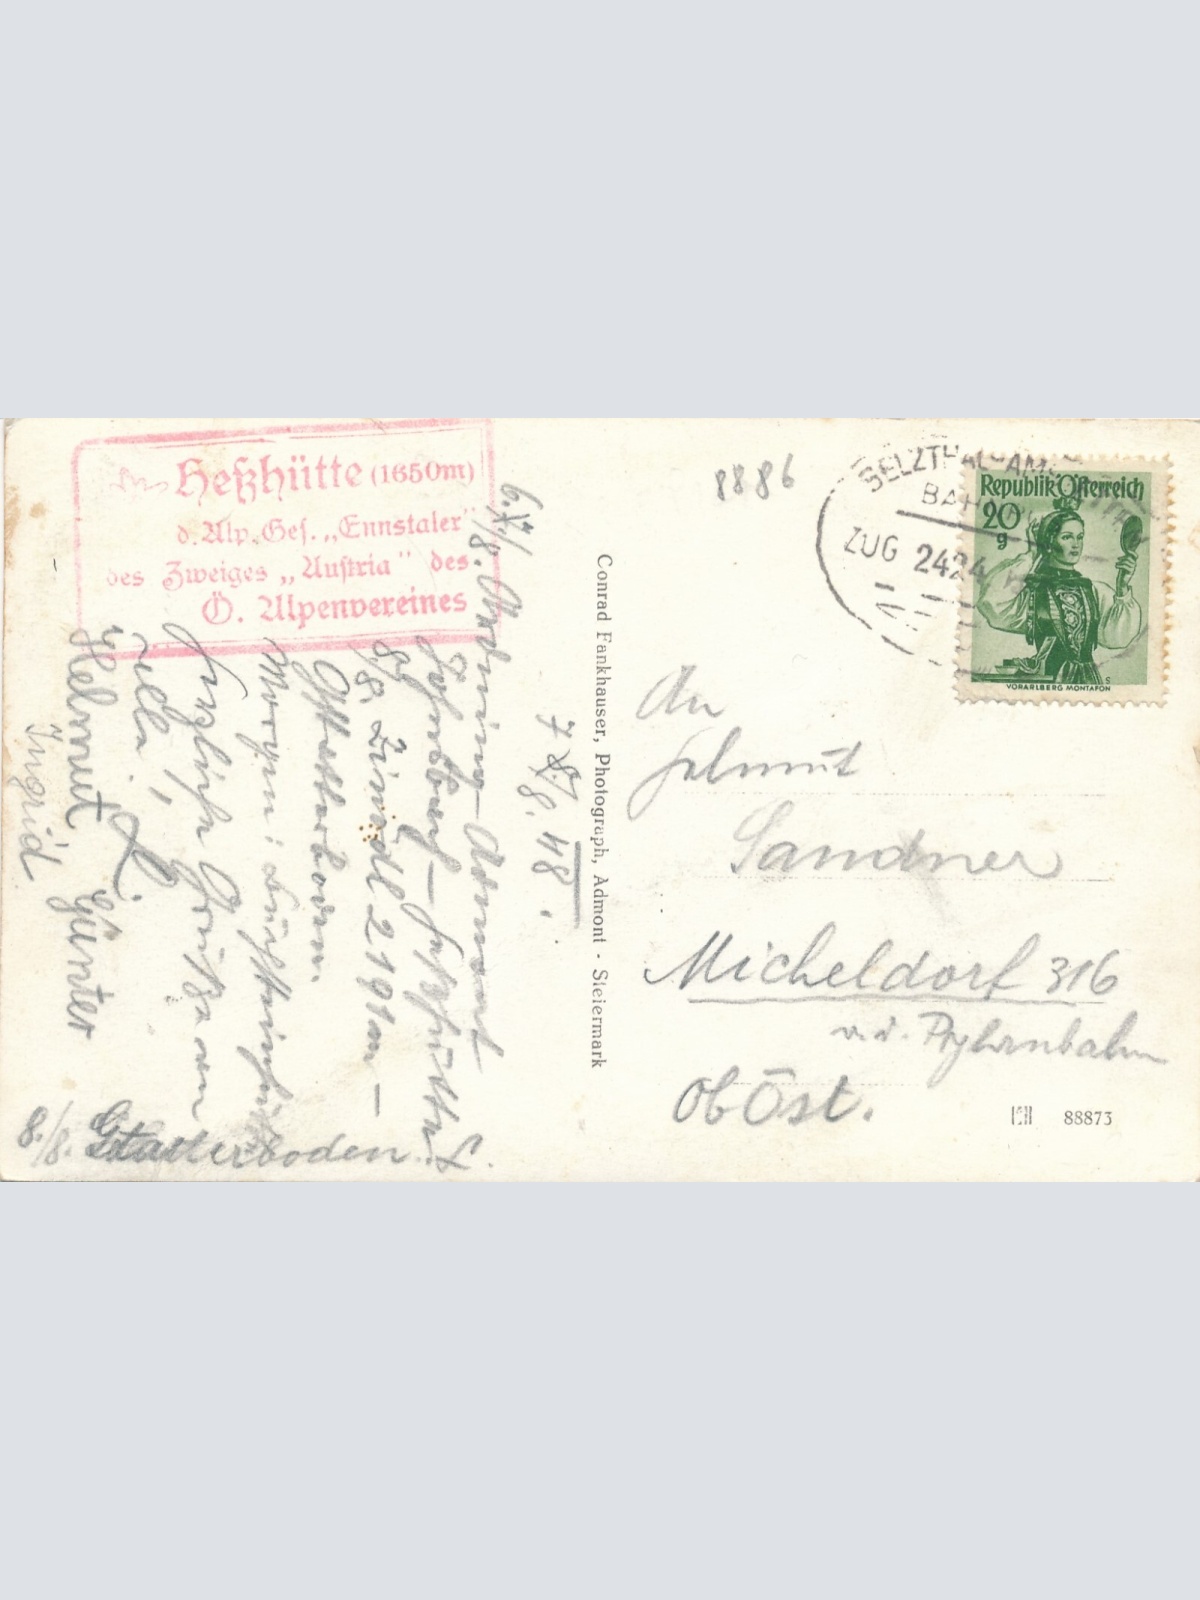 Heßhütte (1650m)
d. Alp. Ges. „Ennstaler"
des Zweiges „Austria" des
Ö. Alpenvereines
7 8./8. 48.
6. /8. Admont
Johnsbach – Heßhütte
8./8. Zinödl 2191m –
Gstatterboden.
Morgen:
Herzliche Grüße von
Helmut Günter
Ingrid
8./8. Gstatterboden.
Conrad Fankhauser, Photograph, Admont - Steiermark
8886
SELZTHAL-AM
BAH
ZUG 2424
Republik Österreich
20
g
S
VORARLBERG MONTAFON
An
Helmut
Sandner
Micheldorf 316
a. d. Pyhrnbahn
Ob Öst.
88873